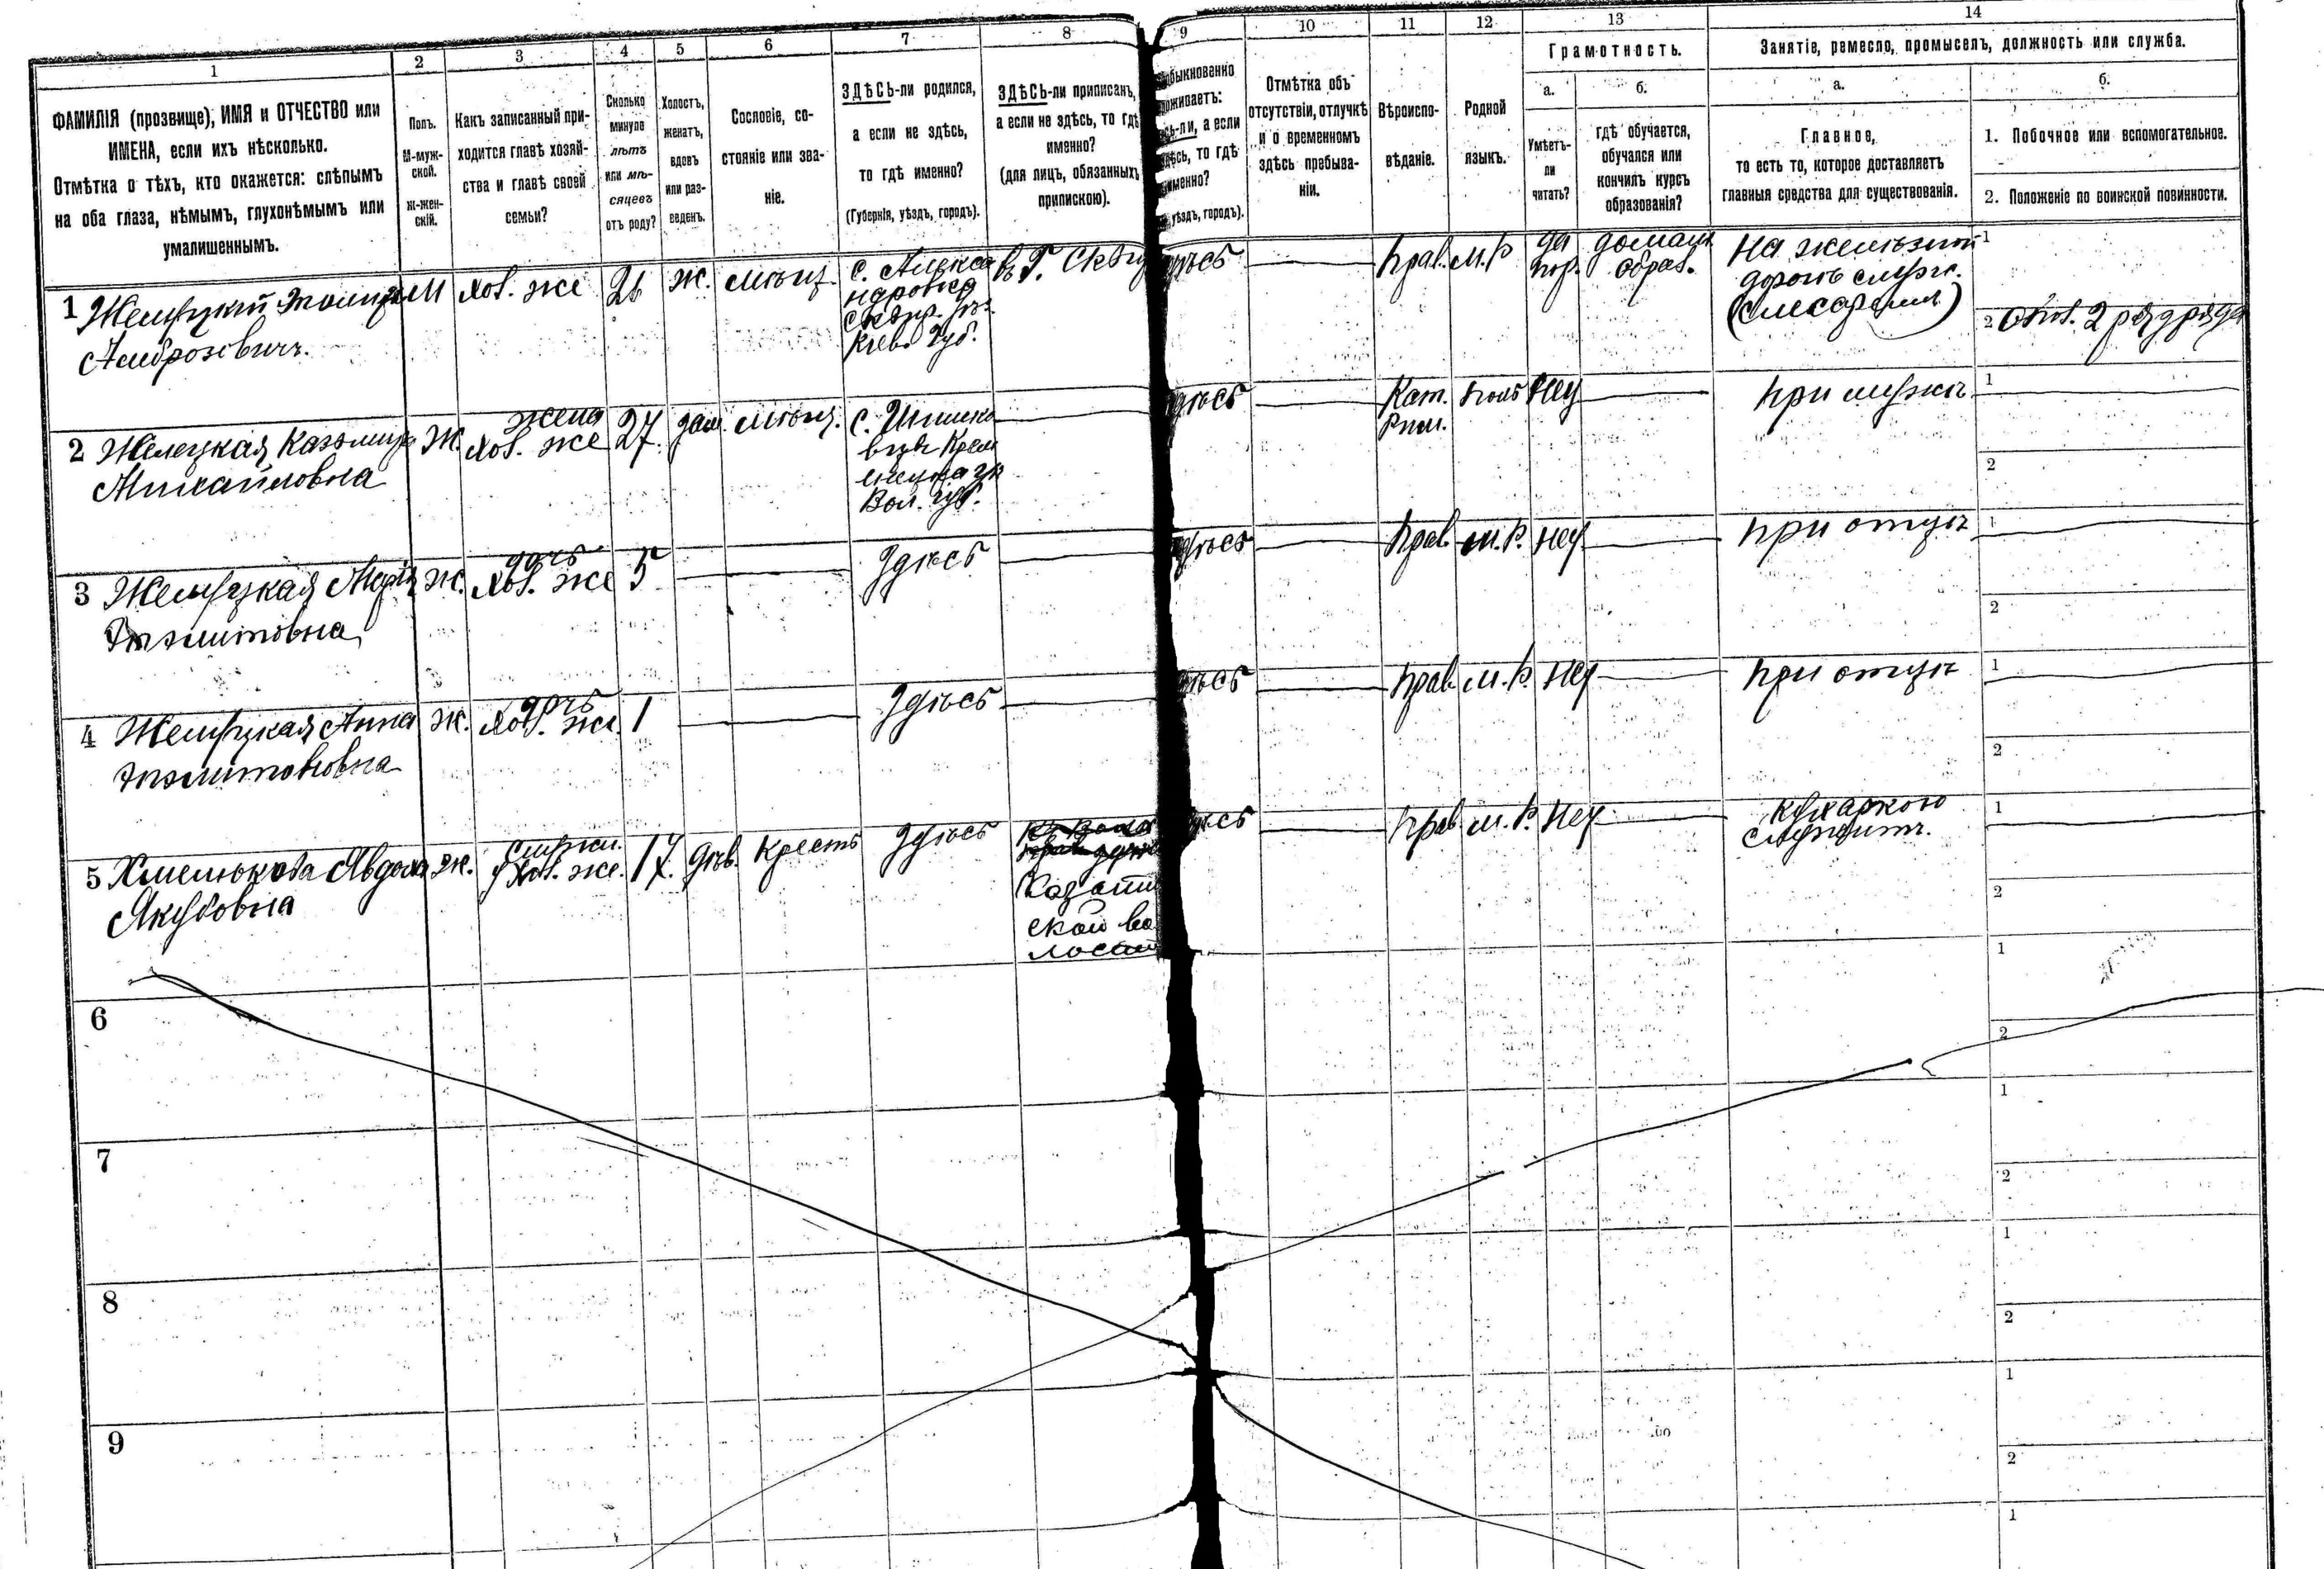 1
2
3
4
5
6
7
8
9
10
11
12
13
14
ФАМИЛІЯ (прозвище), ИМЯ и ОТЧЕСТВО или
ИМЕНА, если ихъ нѣсколько.
Отмѣтка о тѣхъ, кто окажется: слѣпымъ
на оба глаза, нѣмымъ, глухонѣмымъ или
умалишеннымъ.
Полъ.
М-муж-
ской.
Ж-жен-
скій.
Какъ записанный при-
ходится главѣ хозяй-
ства и главѣ своей
семьи?
Сколько
минуло
лѣтъ
или мѣ-
сяцевъ
отъ роду?
Холостъ,
женатъ,
вдовъ
или раз-
веденъ.
Сословіе, со-
стояніе или зва-
ніе.
ЗДѢСЬ-ли родился,
а если не здѣсь,
то гдѣ именно?
(Губернія, уѣздъ, городъ).
ЗДѢСЬ-ли приписанъ,
а если не здѣсь, то гдѣ
именно?
(для лицъ, обязанныхъ
припискою).
быкновенно
оживаетъ:
сь-ли, а если
здѣсь, то гдѣ
именно?
уѣздъ, городъ).
Отмѣтка объ
отсутствіи, отлучкѣ
и о временномъ
здѣсь пребыва-
ніи.
Вѣроиспо-
вѣданіе.
Родной
языкъ.
Грамотность.
а.
Умѣетъ-
ли
читать?
б.
гдѣ обучается,
обучался или
кончилъ курсъ
образованія?
Занятіе, ремесло, промыселъ, должность или служба.
а.
Главное,
то есть то, которое доставляетъ
главныя средства для существованія.
б.
1. Побочное или вспомогательное.
2. Положеніе по воинской повинности.
1
Амброзовичъ.
М хоз. же
Ж. мѣщ.
с. Алекса
ндровка
Сквир. уѣз.
Кіев. Губ.
въ Г. Сквир
здѣсь
Прав. М. Р да
домаш
образ.
На желѣзной
дорогѣ служ.
(слесаремъ)
1
2
2 разряда
2 Желецкая
Михайловна
Ж.
жена
хоз. же 27. зам. мѣщ.
с.
Вол. губ.
здѣсь
Кат.
Рим.
Поль Неу
при мужѣ
1
2
3 Марія
Ж.
дочь
хоз. же 5
здѣсь
здѣсь
Прав. М. Р. Неу
при отцѣ
1
2
4 Анна
Ж.
дочь
хоз. же. 1
здѣсь
здѣсь
Прав. М. Р. Неу
при отцѣ
1
2
5 Хмелюкова Авдотя
Якубовна
Ж.
служ.
у хоз. же. 17. дѣв. Кресть
здѣсь
Козатин
ской во
лости
здѣсь
Прав М. Р. Неу
кухаркою
служитъ.
1
2
6
1
2
7
1
2
8
1
2
9
1
2
1